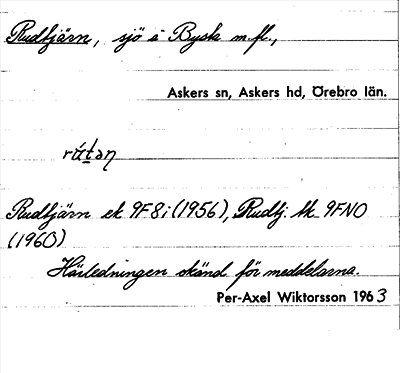 Rudtjärn, sjö å Bysta m.fl.,
Askers sn, Askers hd, Örebro län.
Rudtjärn ek 9F8i (1956), Rudtj. tk 9FNO
(1960)
Härledningen okänd för meddelarna.
Per-Axel Wiktorsson 1963